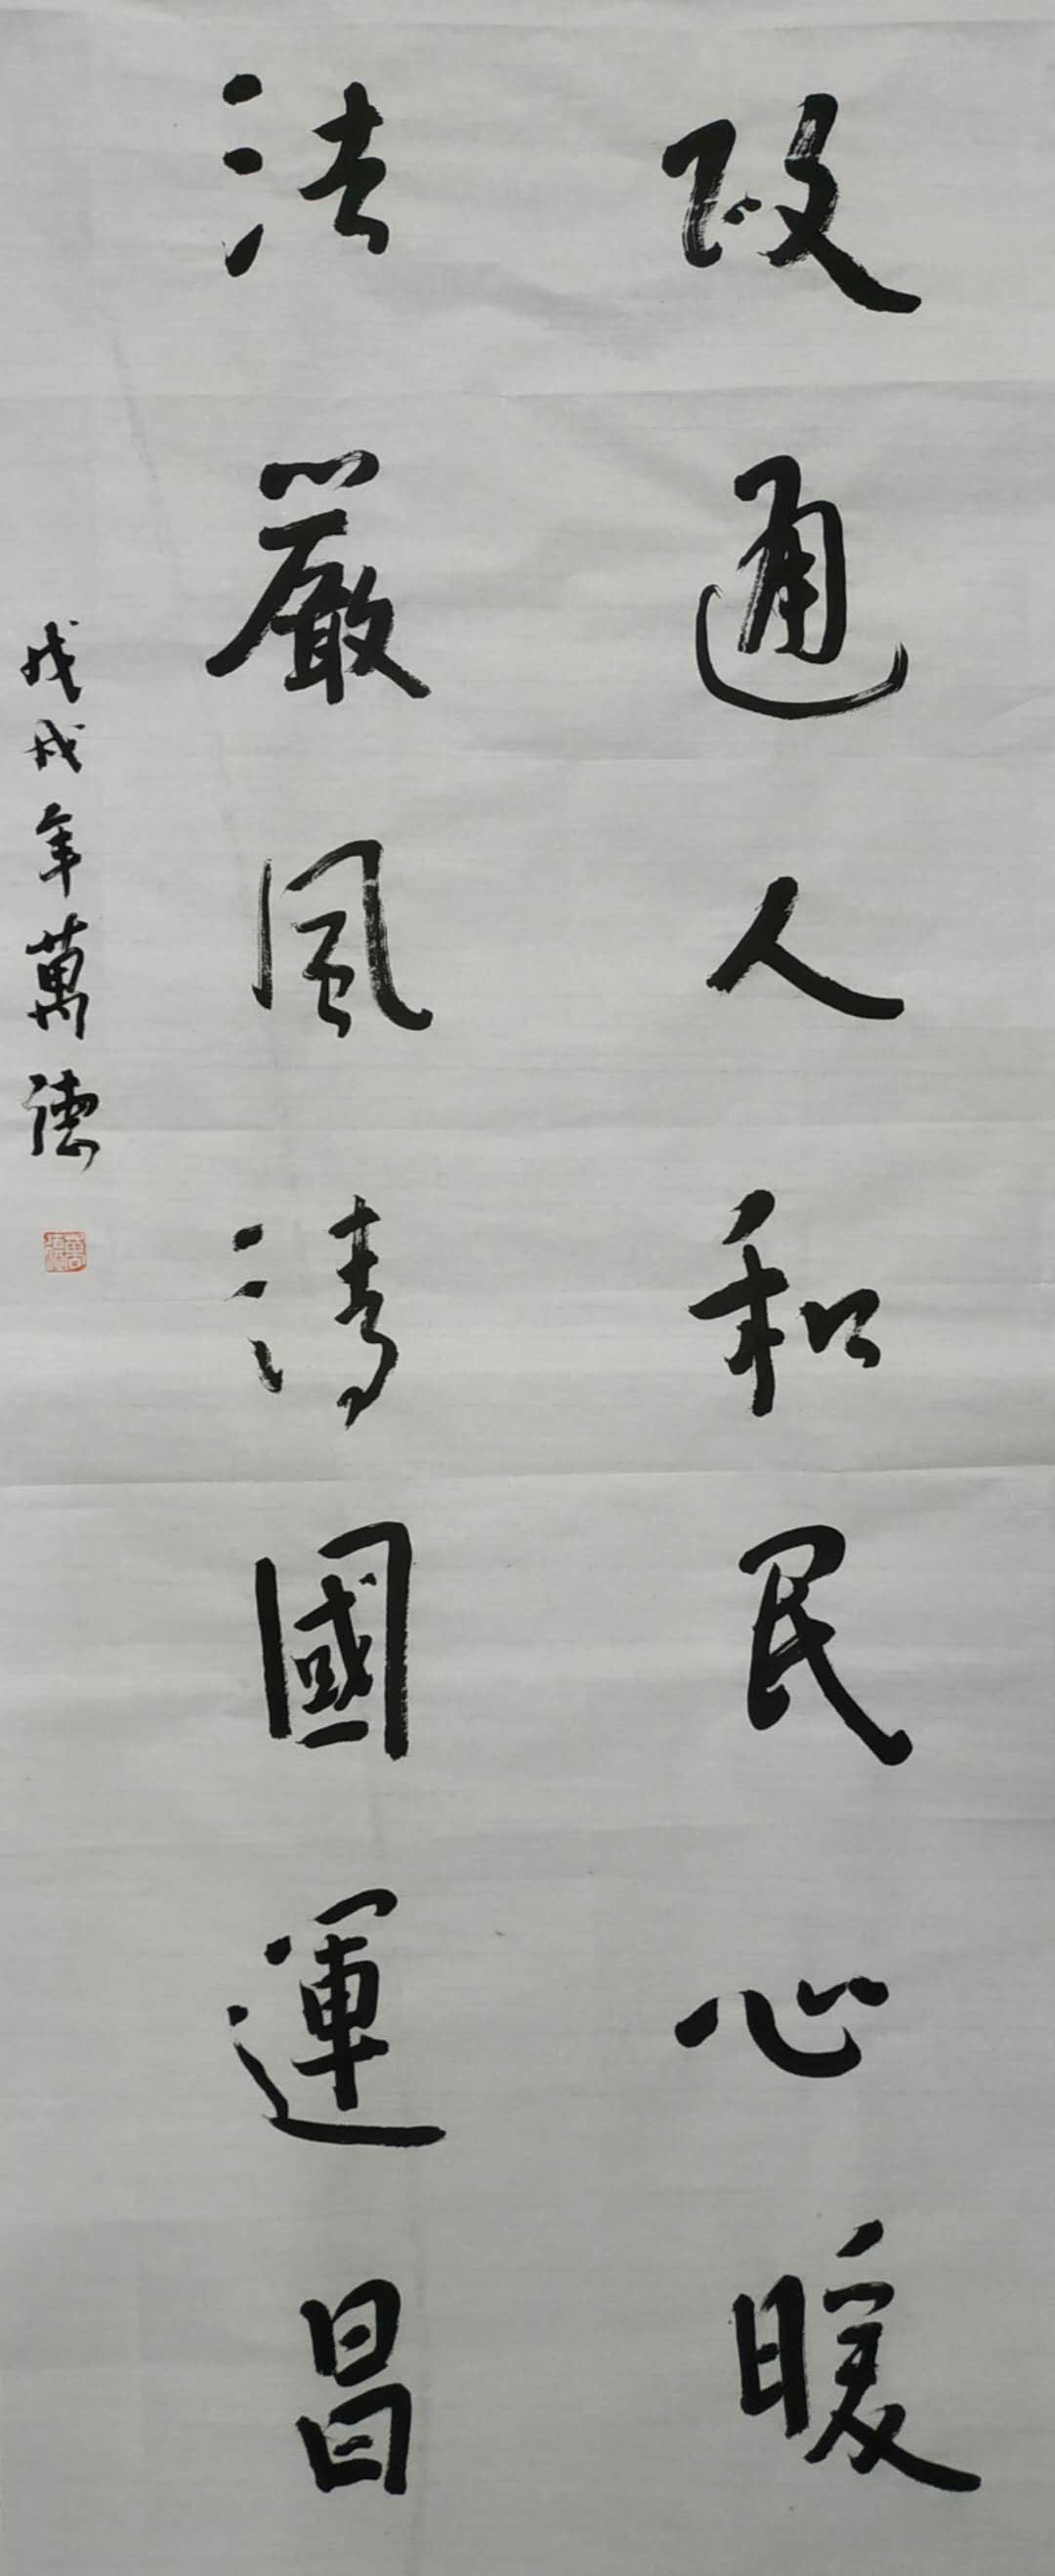 政通人和民心暖
法嚴風清國運昌
戊戌年萬德